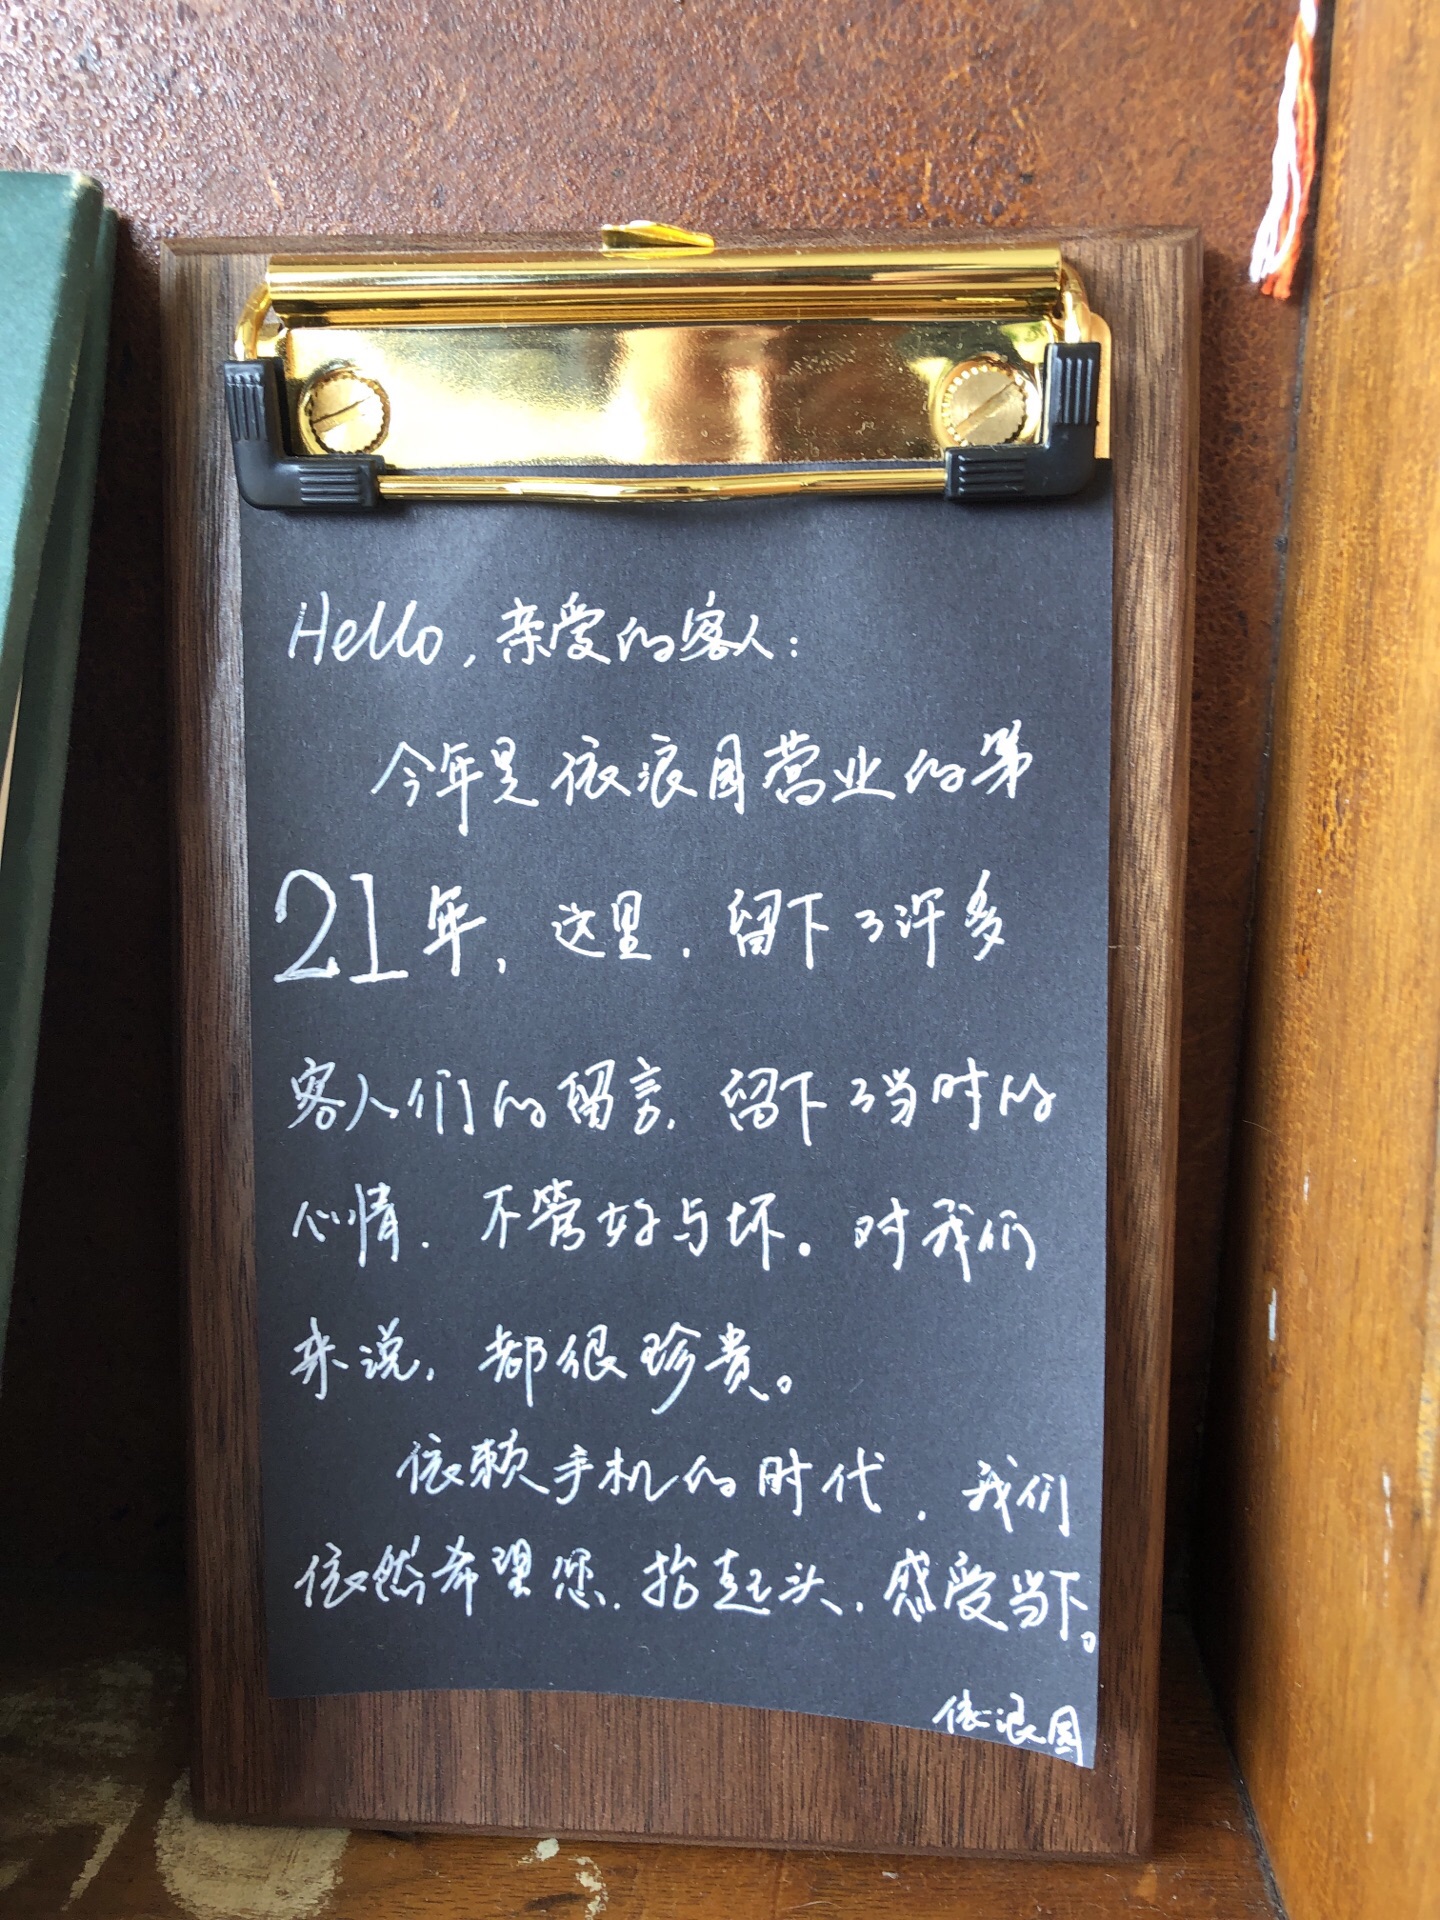 Hello, 亲爱的客人:
今年是依浪园营业的第
21年, 这里, 留下了许多
客人们的留言, 留下了当时的
心情, 不管好与坏。对我们
来说, 都很珍贵。
依赖手机的时代, 我们
依然希望您, 抬起头, 感受当下。
依浪园